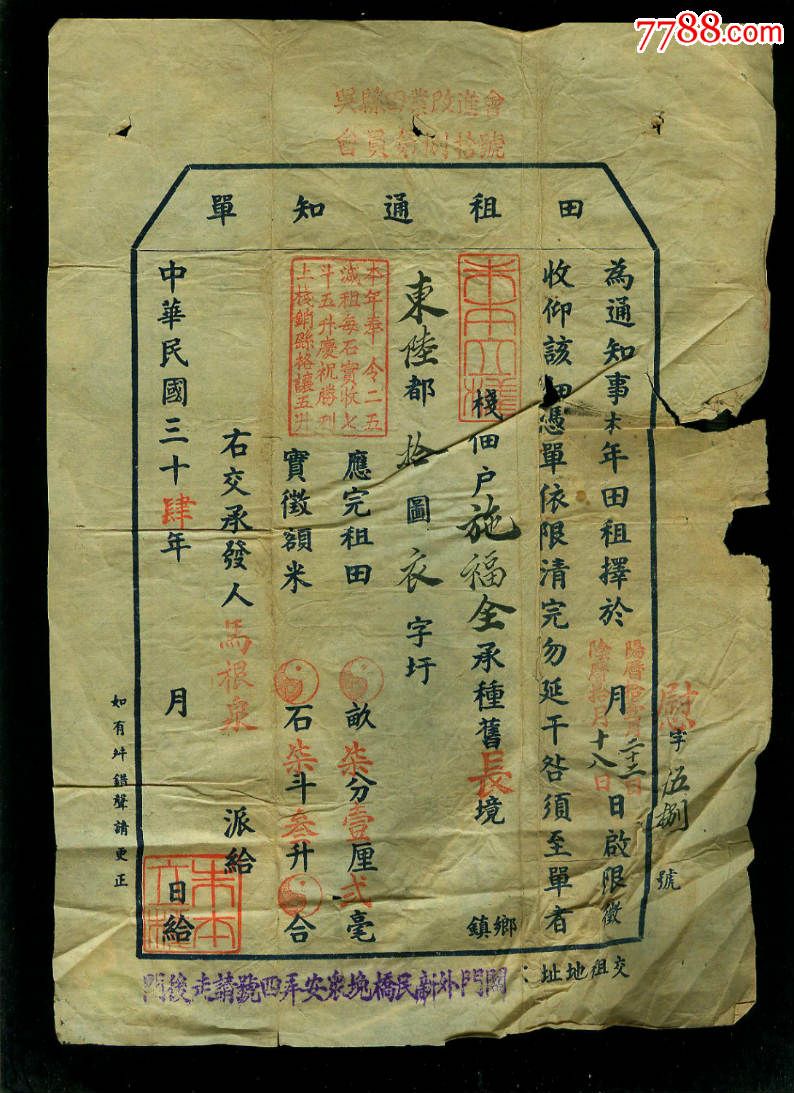 7788.com
吳縣田業改進會
會員第肆拾號
田租通知單
為通知事本年田租擇於 月 日啟限徵
陽曆 月二十二日
陰曆拾月十八日
收仰該佃憑單依限清完勿延干咎須至單者
棧佃戶施福全承種舊長境
鄉
鎮
東陸都拾圖衣字圩
本年奉令二五
減租每石實收七
斗五升慶祝勝利
上核銷縣格讓五升
應完租田 畝柒分壹厘弍毫
實徵額米 石柒斗叁升 合
右交承發人馬根泉 派給
中華民國三十肆年 月 日給
慰字伍捌號
如有舛錯聲請更正
交租地址：
閶門外新民橋堍眾安弄四號請走後門